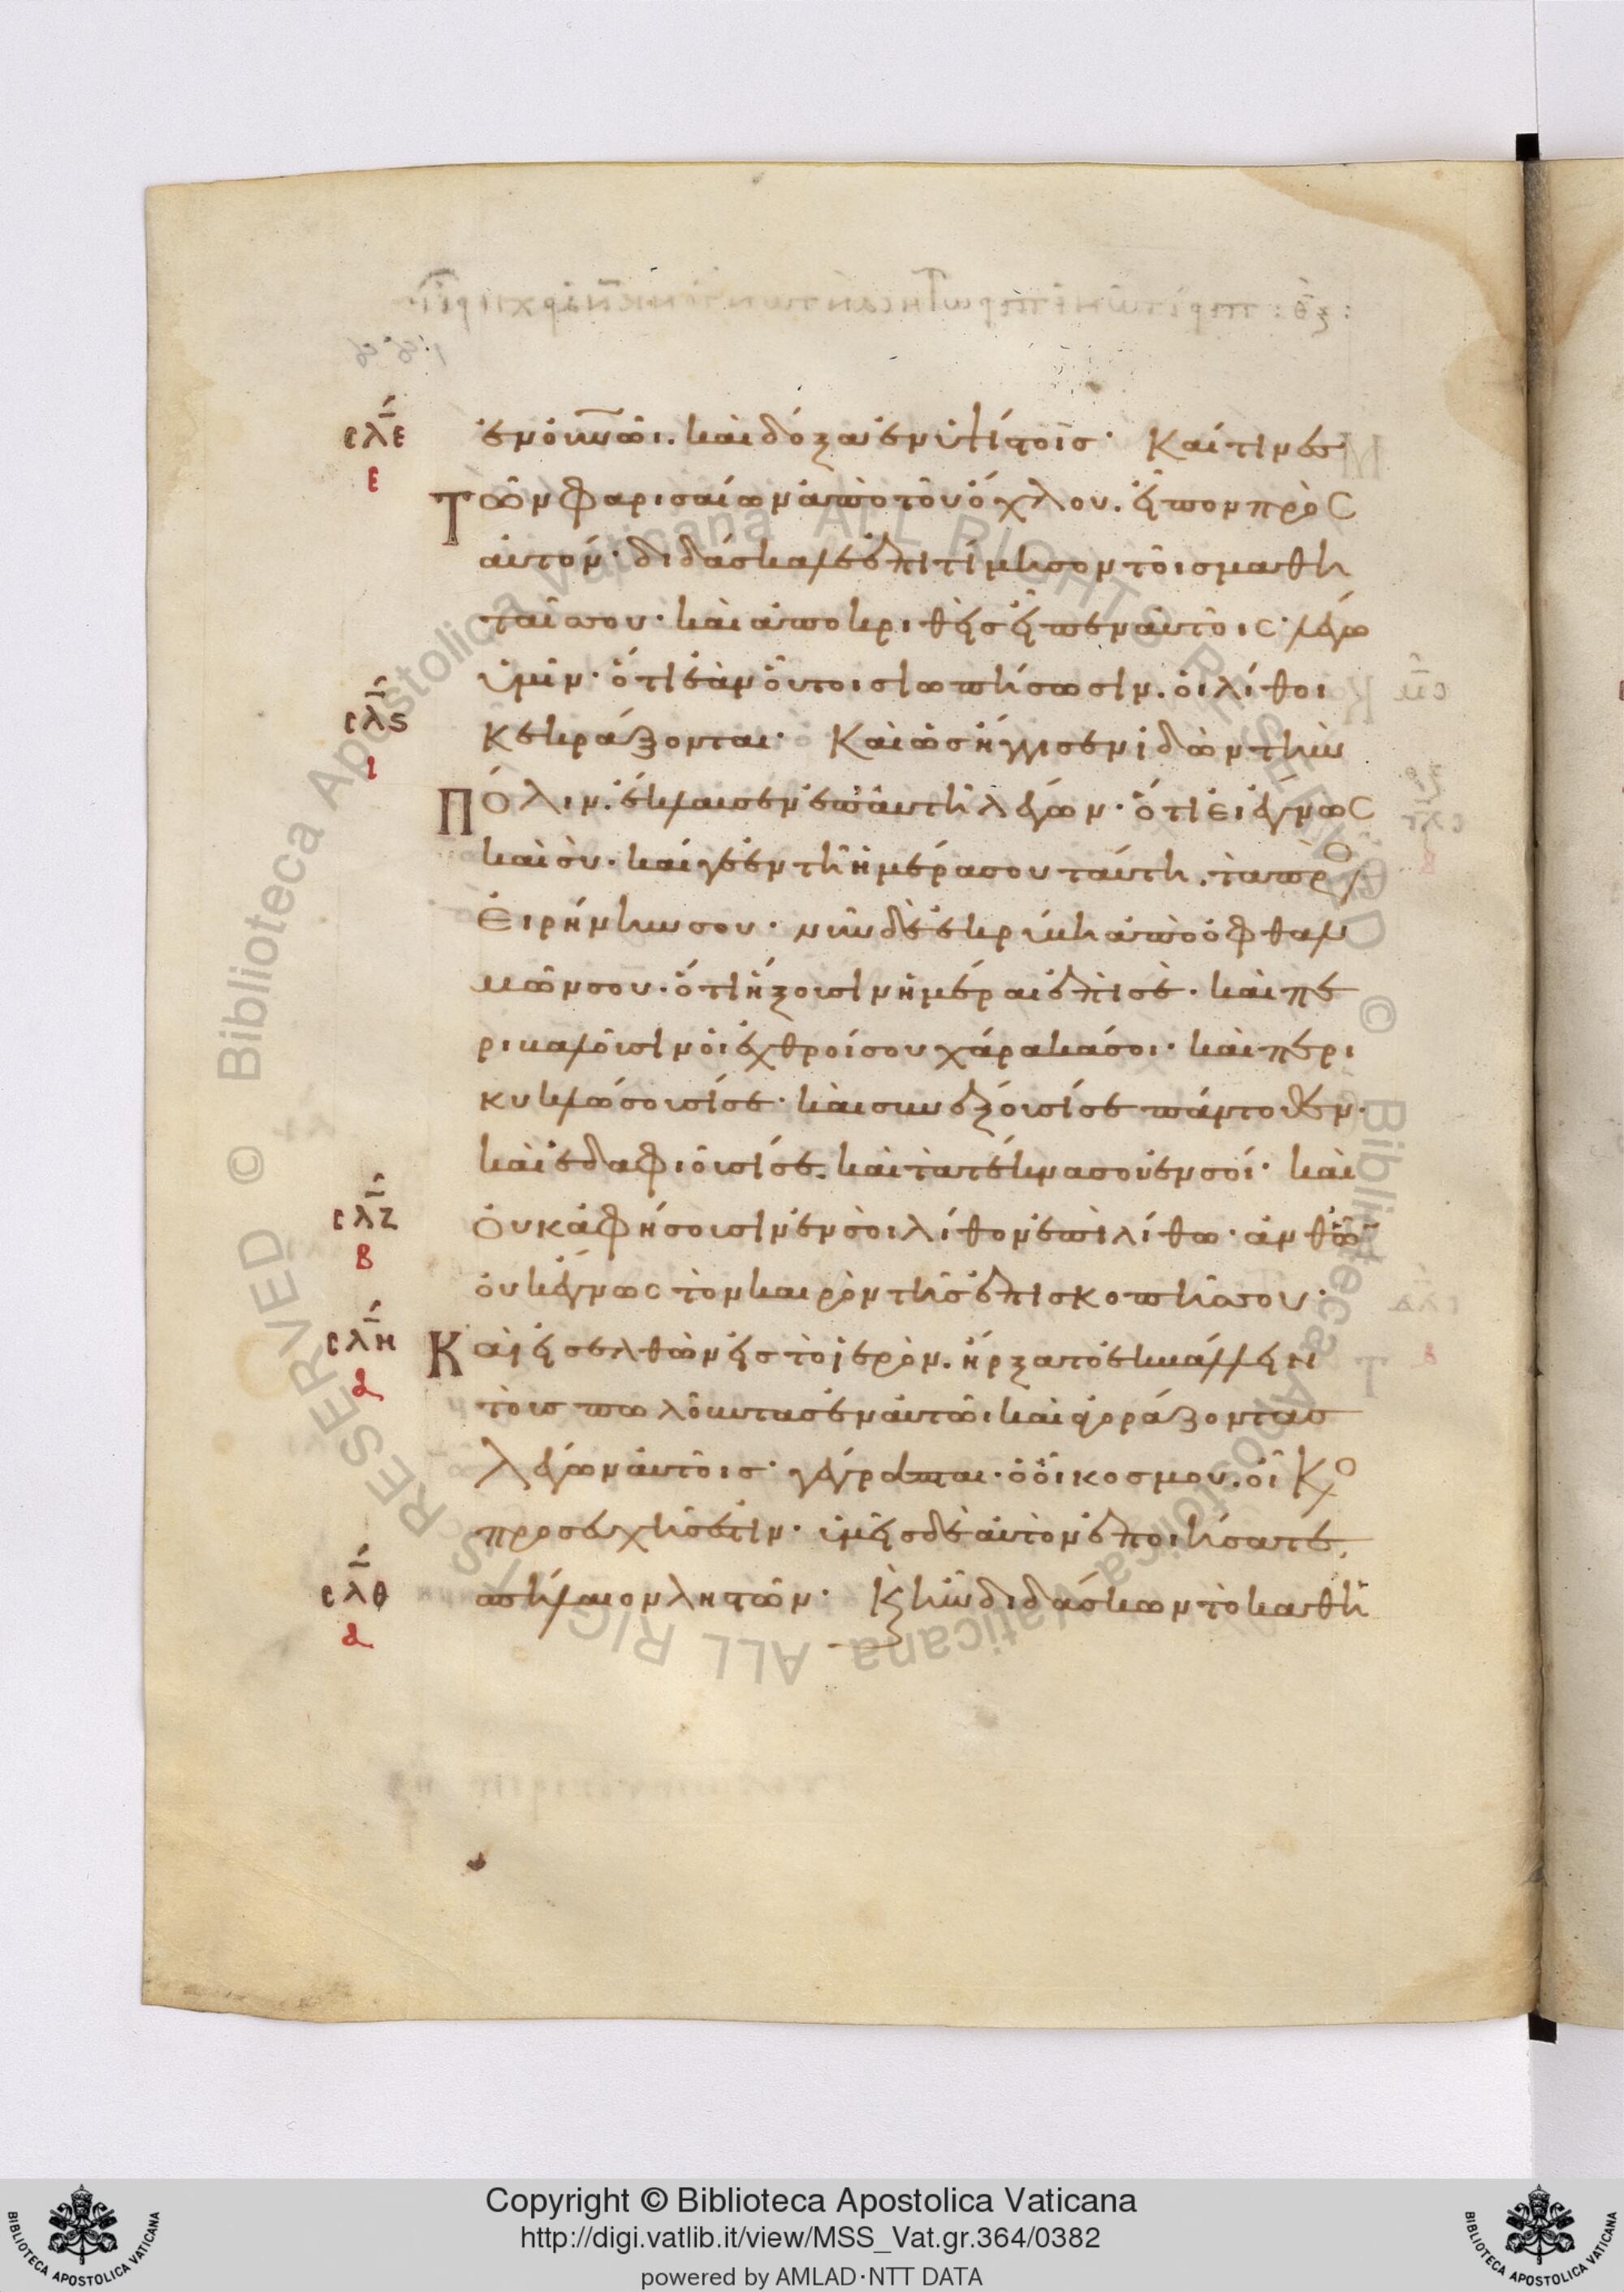 σλε
ε
ἐν οὐνῶι. καὶ δόξα ἐν ὑψίστοις· Καί τινες
Τῶν φαρισαίων ἀπὸ τοῦ ὄχλου. εἶπον πρὸς
αὐτόν· διδάσκαλε ἐπιτίμησον τοῖς μαθη
ταῖς σου· καὶ ἀποκριθεὶς εἶπεν αὐτοῖς· λέγω
ὑμῖν· ὅτι ἐὰν οὗτοι σιωπήσωσιν. οἱ λίθοι
σλς
ι
κεκράξονται· Καὶ ὡς ἤγγισεν ἰδὼν τὴν
Πόλιν. ἔκλαυσεν ἐπ' αὐτῆ λέγων· ὅτι εἰ ἔγνως
καὶ σὺ. καί γε ἐν τῆ ἡμέρα σου ταύτη. τὰ πρὸς
Εἰρήνην σου· νῦν δὲ ἐκρύβη ἀπὸ ὀφθαλ
μῶν σου. ὅτι ἥξουσιν ἡμέραι ἐπι σὲ. καὶ πε
ριβαλοῦσιν οἱ ἐχθροί σου χάρακά σοι· καὶ περι
κυκλώσουσί σε· καὶ συνέξουσί σε πάντοθεν·
καὶ ἐδαφιοῦσί σε. καὶ τὰ τέκνα σου ἐν σοί· καὶ
σλζ
β
Οὐκ ἀφήσουσιν ἐν σοὶ λίθον ἐπὶ λίθω· ἀνθ' ὧν
οὐκ ἔγνως τὸν καιρὸν τῆς ἐπισκοπῆς σου·
σλη
α
Καὶ εἰσελθὼν εἰς τὸ ἱερὸν. ἤρξατο ἐκβάλλειν
τοὺς πωλοῦντας ἐν αὐτῶι καὶ ἀγοράζοντας
λέγων αὐτοῖς· γέγραπται. ὁ οἶκός μου. οἶκος
προσευχῆς ἐστίν· ὑμεῖς δὲ αὐτὸν ἐποιήσατε.
σλθ
α
σπήλαιον ληστῶν· Κ ἦν διδάσκων τὸ καθ' ἡ
Copyright © Biblioteca Apostolica Vaticana
http://digi.vatlib.it/view/MSS_Vat.gr.364/0382
powered by AMLAD·NTT DATA